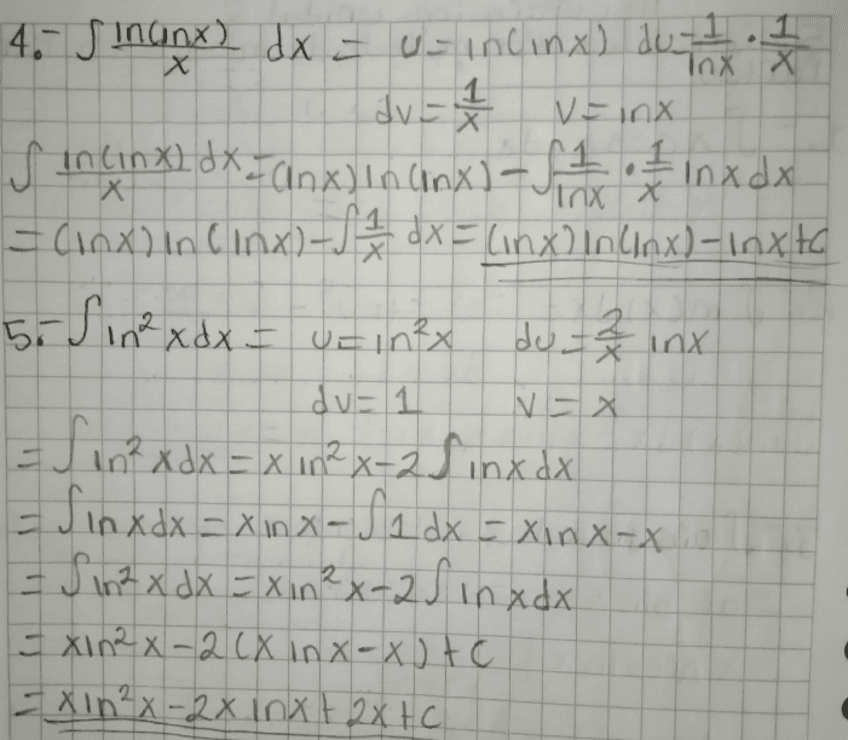 4.- ∫ ln(lnx)/x dx = u = ln(lnx) du = 1/lnx · 1/x
dv = 1/x v = lnx
∫ ln(lnx)/x dx = (lnx) ln(lnx) - ∫ 1/lnx · 1/x lnx dx
= (lnx) ln(lnx) - ∫ 1/x dx = (lnx) ln(lnx) - lnx + C
5.- ∫ ln² x dx = u = ln² x du = 2/x lnx
dv = 1 v = x
= ∫ ln² x dx = x ln² x - 2 ∫ lnx dx
= ∫ lnx dx = x lnx - ∫ 1 dx = x lnx - x
= ∫ ln² x dx = x ln² x - 2 ∫ lnx dx
= x ln² x - 2 (x lnx - x) + C
= x ln² x - 2x lnx + 2x + C